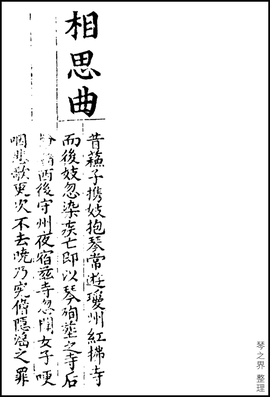 相思曲
昔蘓子携妓抱琴常遊瓊州紅拂寺
而後妓忽染疾亡即以琴殉塟之寺后
後守州夜宿兹寺忽聞女子哽
咽悲歌更次不去曉乃究僧隱之罪
琴之界 整理